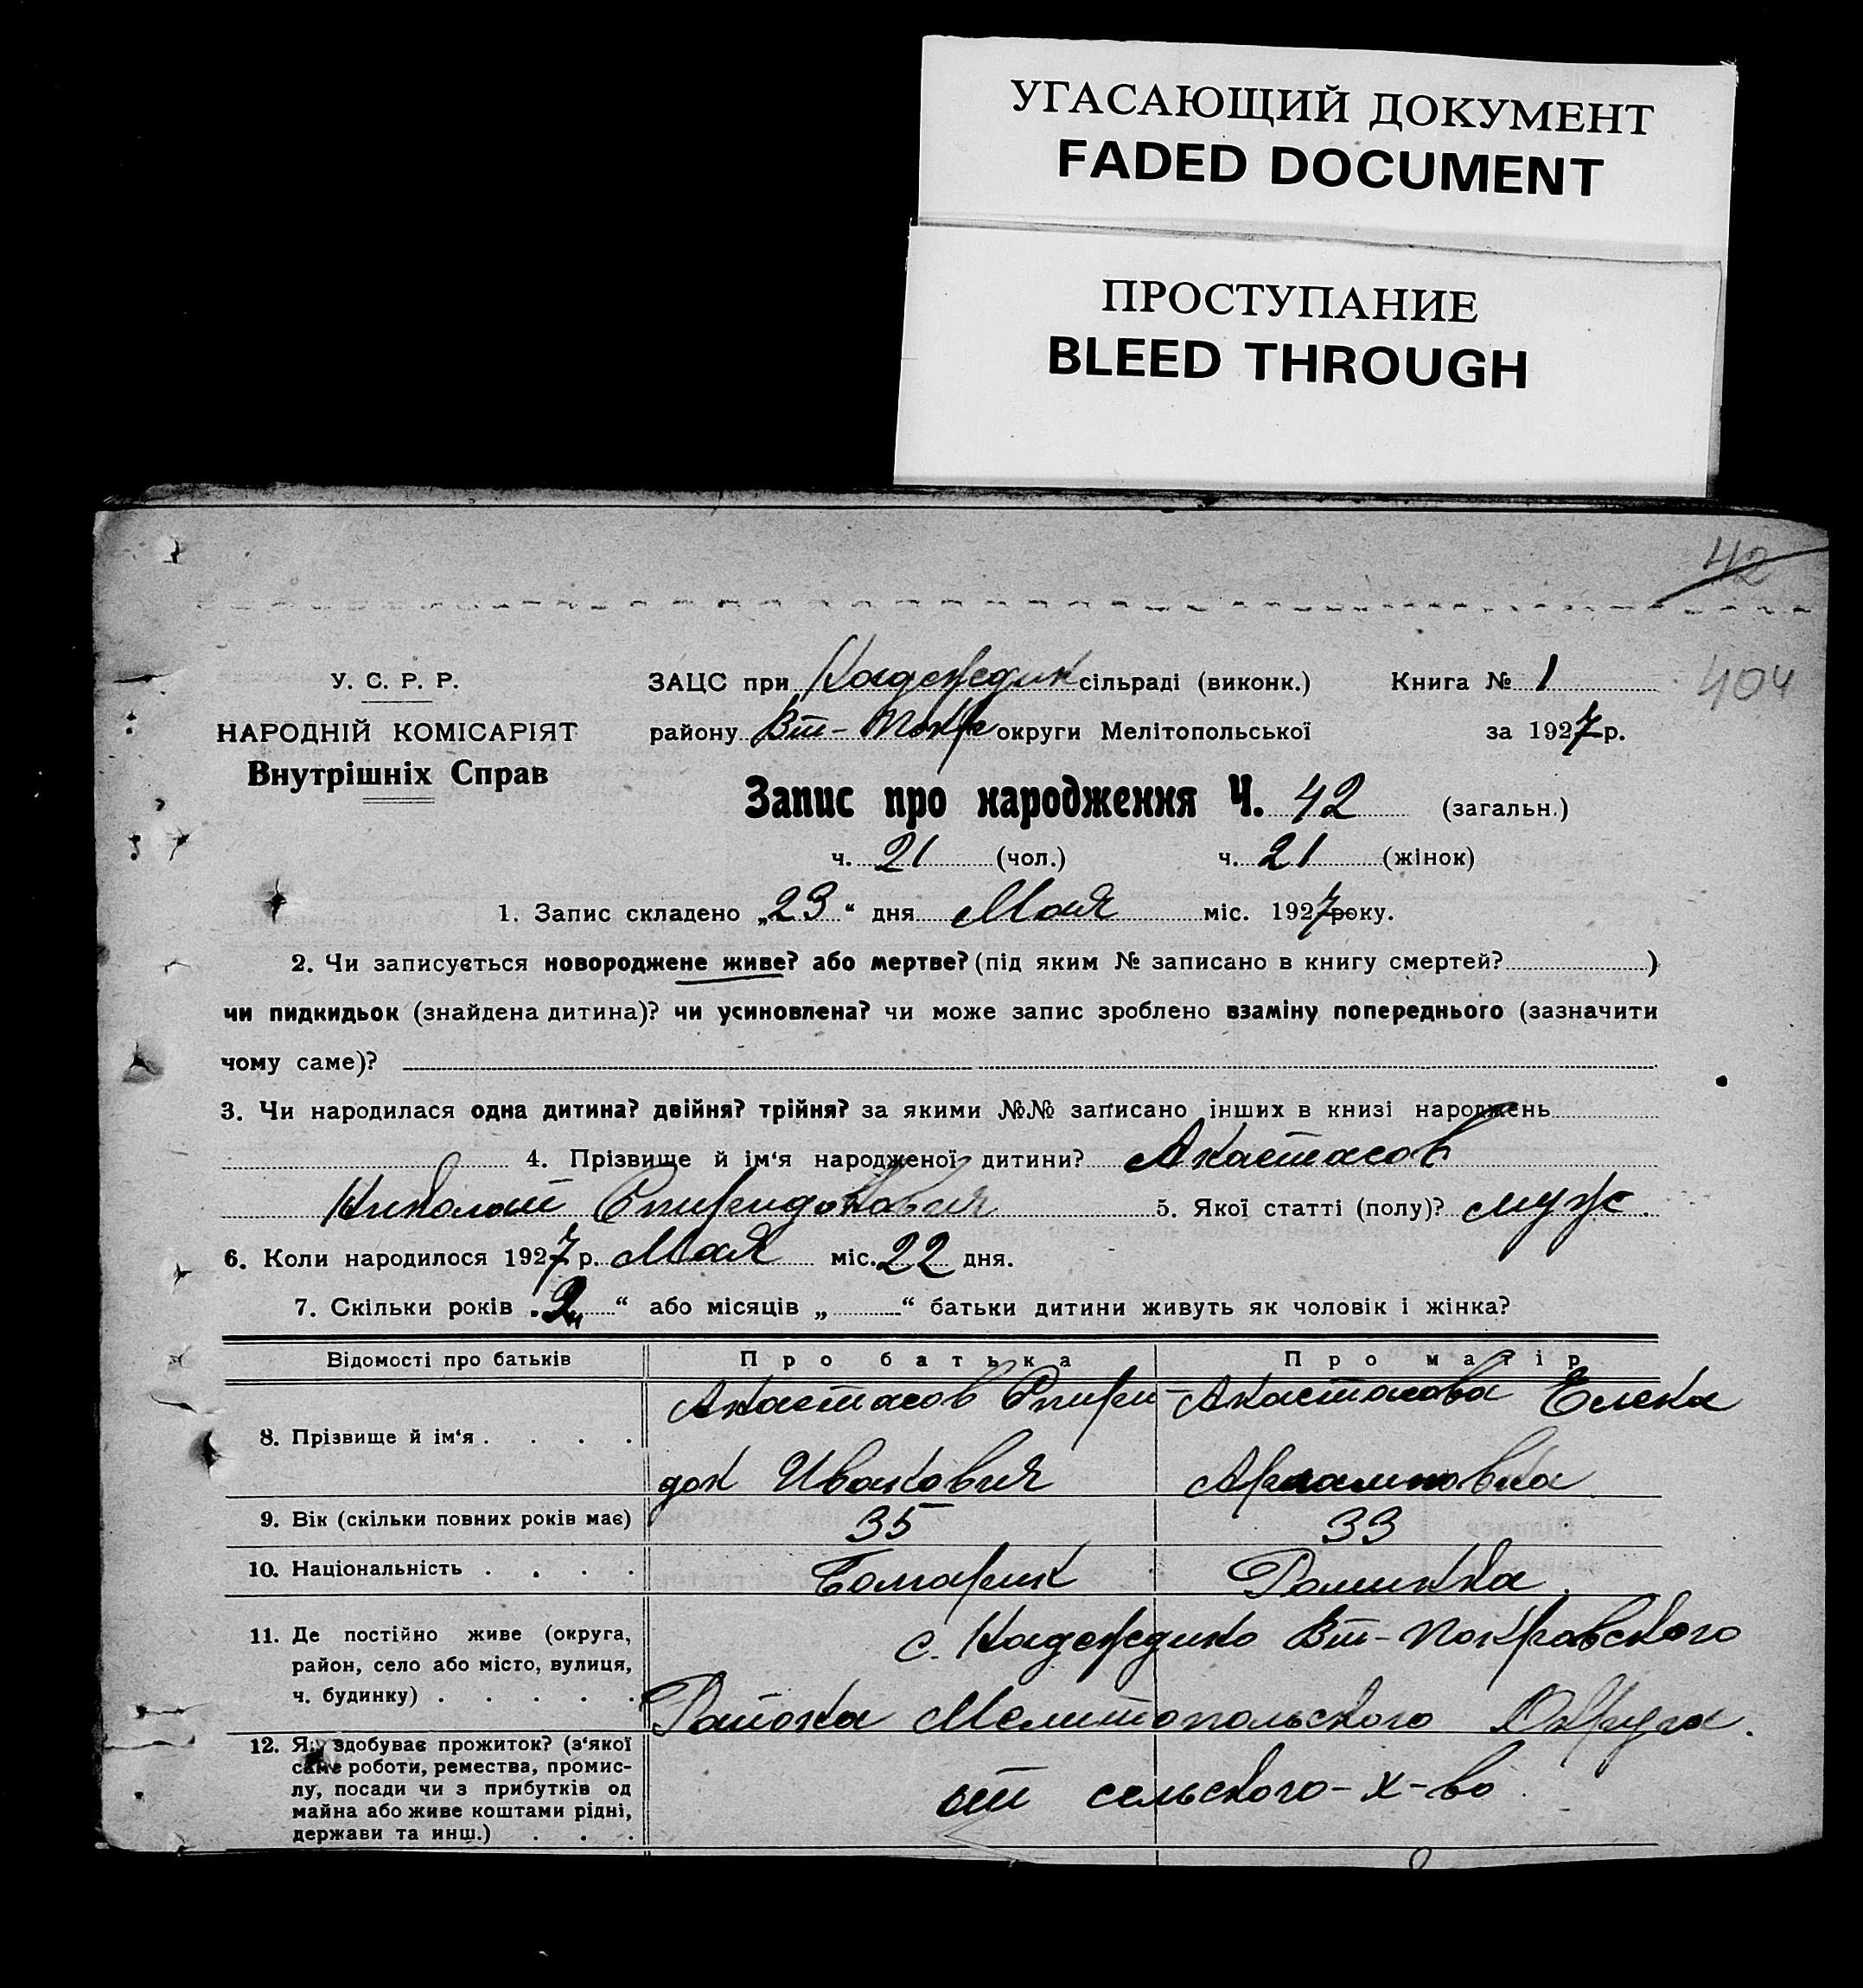 УГАСАЮЩИЙ ДОКУМЕНТ
FADED DOCUMENT
ПРОСТУПАНИЕ
BLEED THROUGH
42
404
У. С. Р. Р.
НАРОДНІЙ КОМІСАРІЯТ
Внутрішніх Справ
ЗАЦС при Надеждин сільраді (виконк.) Книга № 1
району Вт-Покр округи Мелітопольської за 1927 р.
Запис про народження Ч. 42 (загальн.)
ч. 21 (чол.) ч. 21 (жінок)
1. Запис складено „23“ дня Мая міс. 1927 року.
2. Чи записується новороджене живе? або мертве? (під яким № записано в книгу смертей? )
чи пидкидьок (знайдена дитина)? чи усиновлена? чи може запис зроблено взаміну попереднього (зазначити
чому саме)?
3. Чи народилася одна дитина? двійня? трійня? за якими №№ записано інших в книзі народжень
4. Прізвище й ім‘я народженої дитини? Анастасов
Николай Спиридонович 5. Якої статті (полу)? муж.
6. Коли народилося 1927 р. Мая міс. 22 дня.
7. Скільки років „2“ або місяців „ “ батьки дитини живуть як чоловік і жінка?
Відомості про батьків Про батька Про матір
8. Прізвище й ім‘я . . . .
Анастасов Спири-
дон Иванович
Анастасова Елена
9. Вік (скільки повних років має) 35 33
10. Національність . . . . Болгарин
11. Де постійно живе (округа,
район, село або місто, вулиця,
ч. будинку) . . . . .
с. Надеждино Вт-Покровского
Района Мелитопольского Округа.
12. Як здобуває прожиток? (з‘якої
саме роботи, ремества, промис-
лу, посади чи з прибутків од
майна або живе коштами рідні,
держави та инш.) . . .
от сельского-х-во